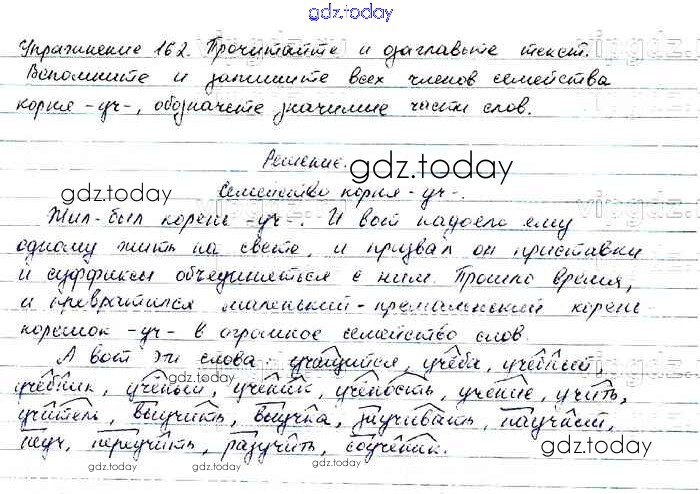 gdz.today
Упражнение 162. Прочитайте и озаглавьте текст.
Вспомните и запишите всех членов семейства
корня -уч-, обозначьте значимые части слов.
Решение.
gdz.today
gdz.today
Семейство корня -уч-.
Жил-был корень -уч-. И вот надоело ему
одному жить на свете, и призвал он приставки
и суффиксы объединяться с ним. Прошло время,
и превратился маленький-премаленький корень
корешок -уч- в огромное семейство слов.
А вот эти слова: учащийся, учёба, учебный,
gdz.today
учебник, учёный, ученик, учёность, учение, учить,
учитель, выучить, выучка, заучивать, научный,
неуч, переучить, разучить, соученик.
gdz.today
gdz.today
gdz.today